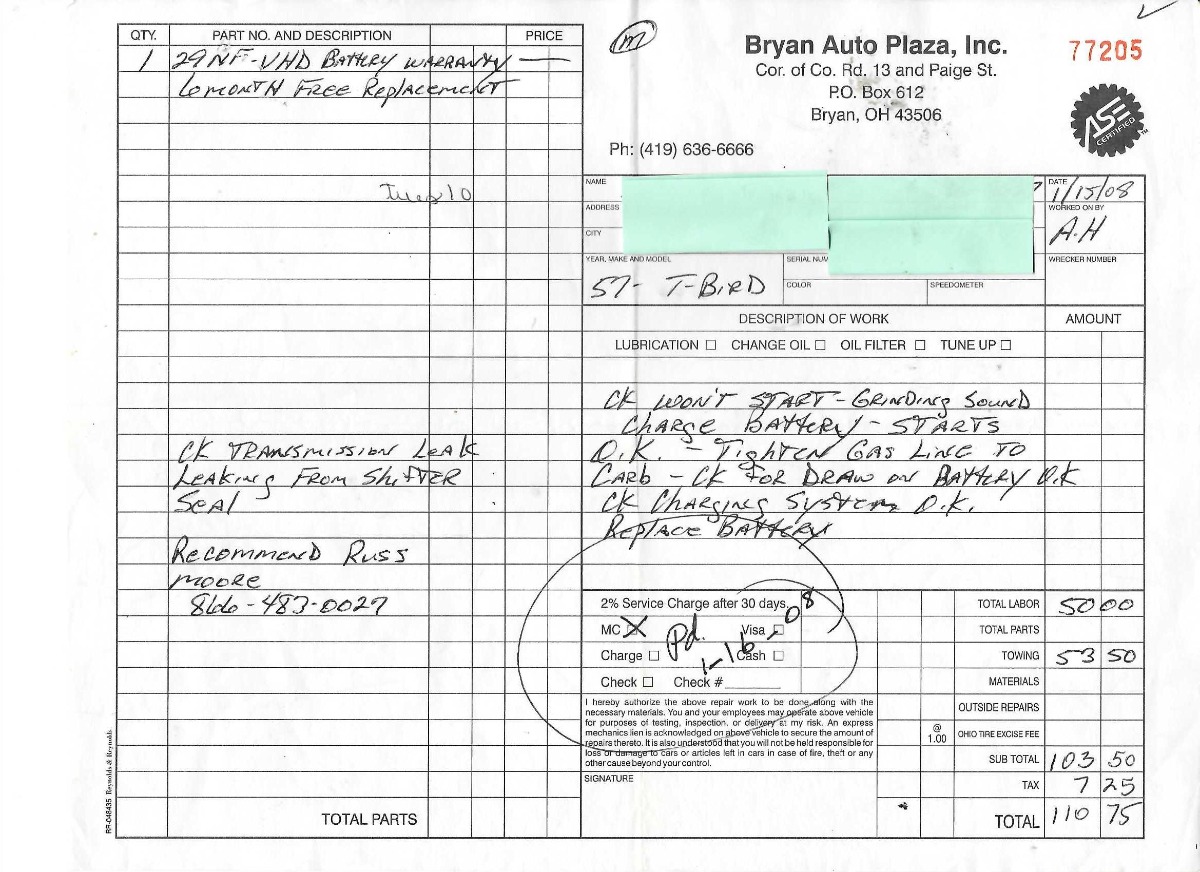 QTY. PART NO. AND DESCRIPTION PRICE
1 29NF-VHD BATTERY WARRANTY —
60MONTH FREE REPLACEMENT
Tues 10
CK TRANSMISSION LEAK
LEAKING FROM SHIFTER
SEAL
RECOMMEND RUSS
MOORE
866-483-0027
TOTAL PARTS
RR-048435 Reynolds & Reynolds
M
Bryan Auto Plaza, Inc.
77205
Cor. of Co. Rd. 13 and Paige St.
P.O. Box 612
Bryan, OH 43506
ASE
CERTIFIED
Ph: (419) 636-6666
NAME
DATE
1/15/08
ADDRESS
WORKED ON BY
A.H
CITY
YEAR, MAKE AND MODEL
SERIAL NUM
WRECKER NUMBER
57- T-BIRD
COLOR
SPEEDOMETER
DESCRIPTION OF WORK AMOUNT
LUBRICATION ☐ CHANGE OIL ☐ OIL FILTER ☐ TUNE UP ☐
CK WON'T START - GRINDING SOUND
CHARGE BATTERY - STARTS
O.K. - TIGHTEN GAS LINE TO
CARB - CK FOR DRAW ON BATTERY O.K
CK CHARGING SYSTEM O.K.
REPLACE BATTERY
2% Service Charge after 30 days
MC X Visa ☐
Charge ☐ Cash ☐
Pd. 1-16-08
Check ☐ Check #
I hereby authorize the above repair work to be done along with the
necessary materials. You and your employees may operate above vehicle
for purposes of testing, inspection, or delivery at my risk. An express
mechanics lien is acknowledged on above vehicle to secure the amount of
repairs thereto. It is also understood that you will not be held responsible for
loss or damage to cars or articles left in cars in case of fire, theft or any
other cause beyond your control.
SIGNATURE
TOTAL LABOR 50 00
TOTAL PARTS
TOWING 53 50
MATERIALS
OUTSIDE REPAIRS
@ 1.00 OHIO TIRE EXCISE FEE
SUB TOTAL 103 50
TAX 7 25
TOTAL 110 75